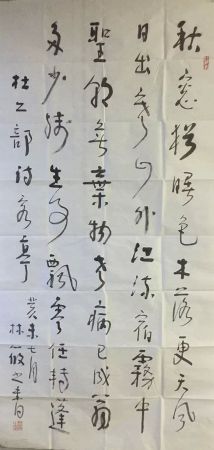 秋窓猶曙色木落更天風
日出寒山外江流宿霧中
聖朝無棄物老病已成翁
多少殘生事飄零任轉蓬
杜工部詩客亭
癸未七月
林筱之書